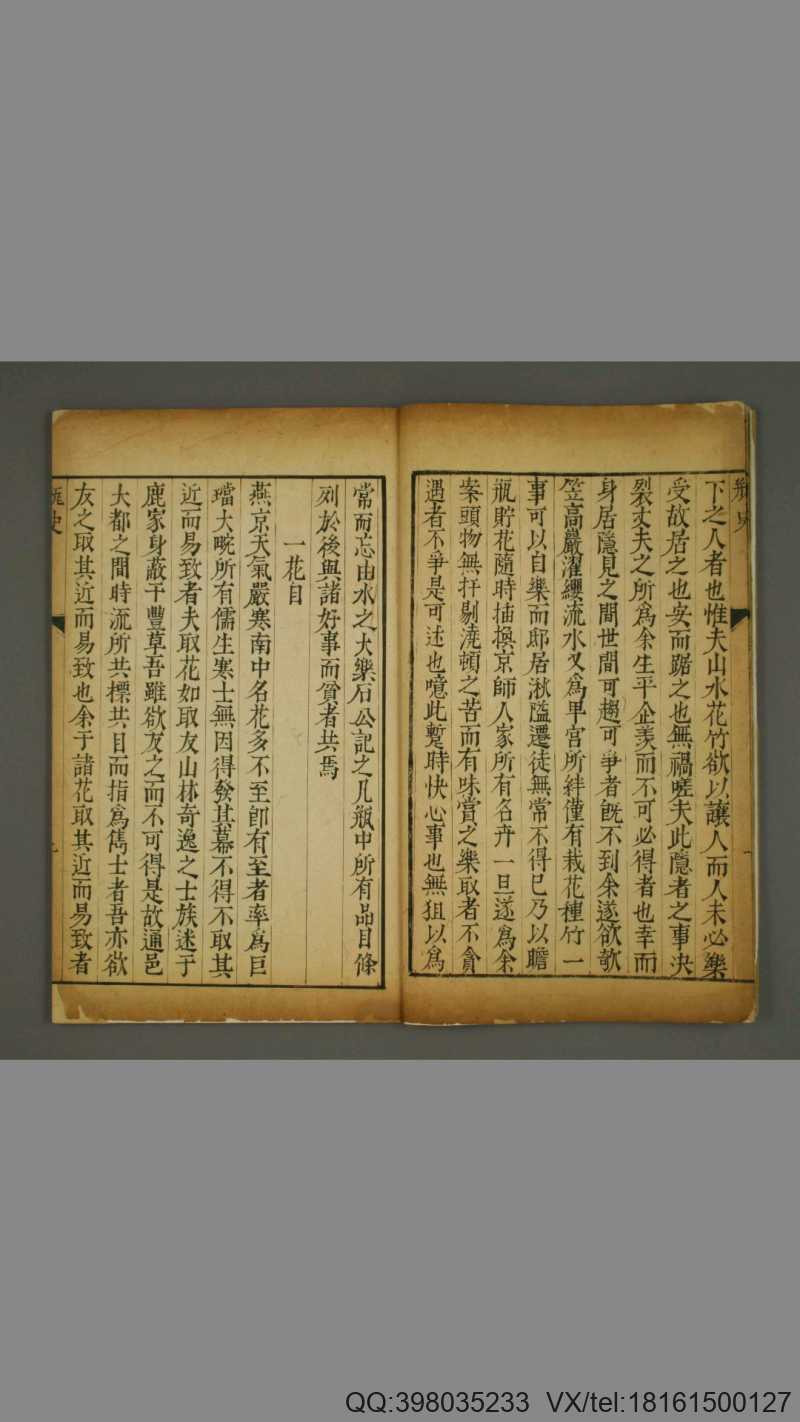 瓶史
下之人者也惟夫山水花竹欲以讓人而人未必樂
受故居之也安而踞之也無禍嗟夫此隱者之事決
裂丈夫之所為余生平企羨而不可必得者也幸而
身居隱見之間世間可趨可爭者既不到余遂欲欹
笠高嚴濯纓流水又為卑官所絆僅有栽花種竹一
事可以自樂而邸居湫隘遷徙無常不得已乃以膽
瓶貯花隨時插換京師人家所有名卉一旦遂為余
案頭物無扞剔澆頓之苦而有味賞之樂取者不貪
遇者不爭是可述也噫此暫時快心事也無狃以為
常而忘山水之大樂石公記之凡瓶中所有品目條
列於後與諸好事而貧者共焉
一花目
燕京天氣嚴寒南中名花多不至即有至者率為巨
璫大畹所有儒生寒士無因得發其幕不得不取其
近而易致者夫取花如取友山林奇逸之士族迷于
鹿豕身蔽于豐草吾雖欲友之而不可得是故通邑
大都之間時流所共摽共目而指為雋士者吾亦欲
友之取其近而易致也余于諸花取其近而易致者
瓶史
QQ:398035233 VX/tel:18161500127